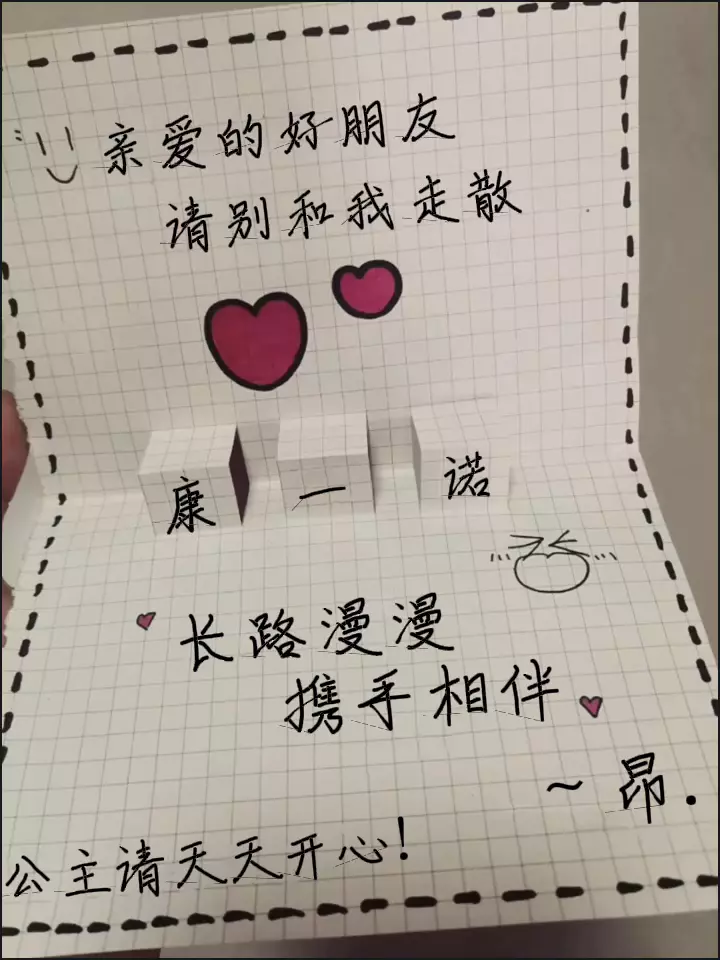 亲爱的好朋友
请别和我走散
康一诺
长路漫漫
携手相伴
~昂.
公主请天天开心!